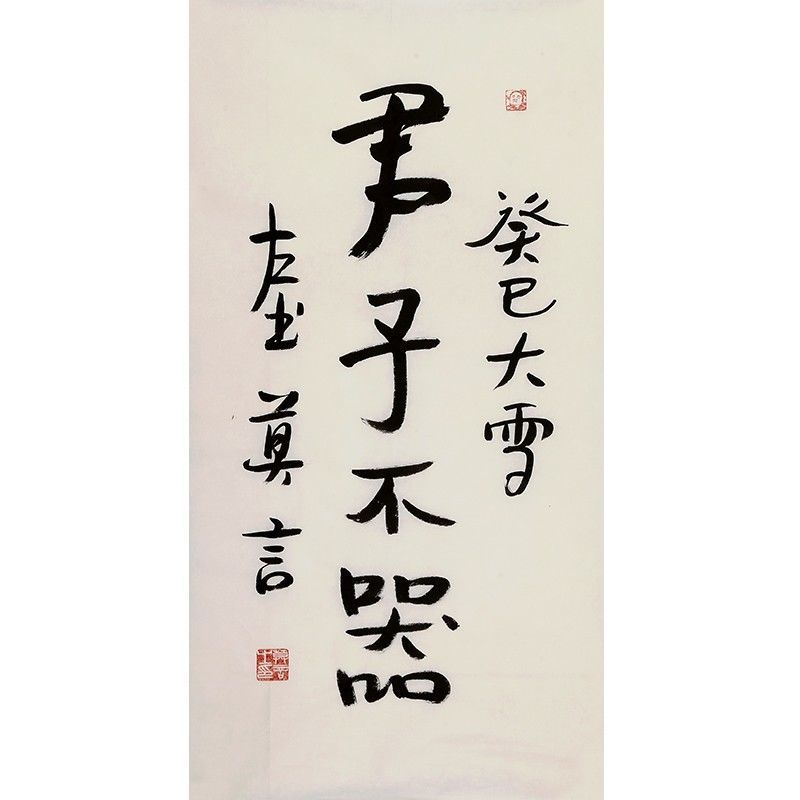 癸巳大雪
君子不器
左书 莫言